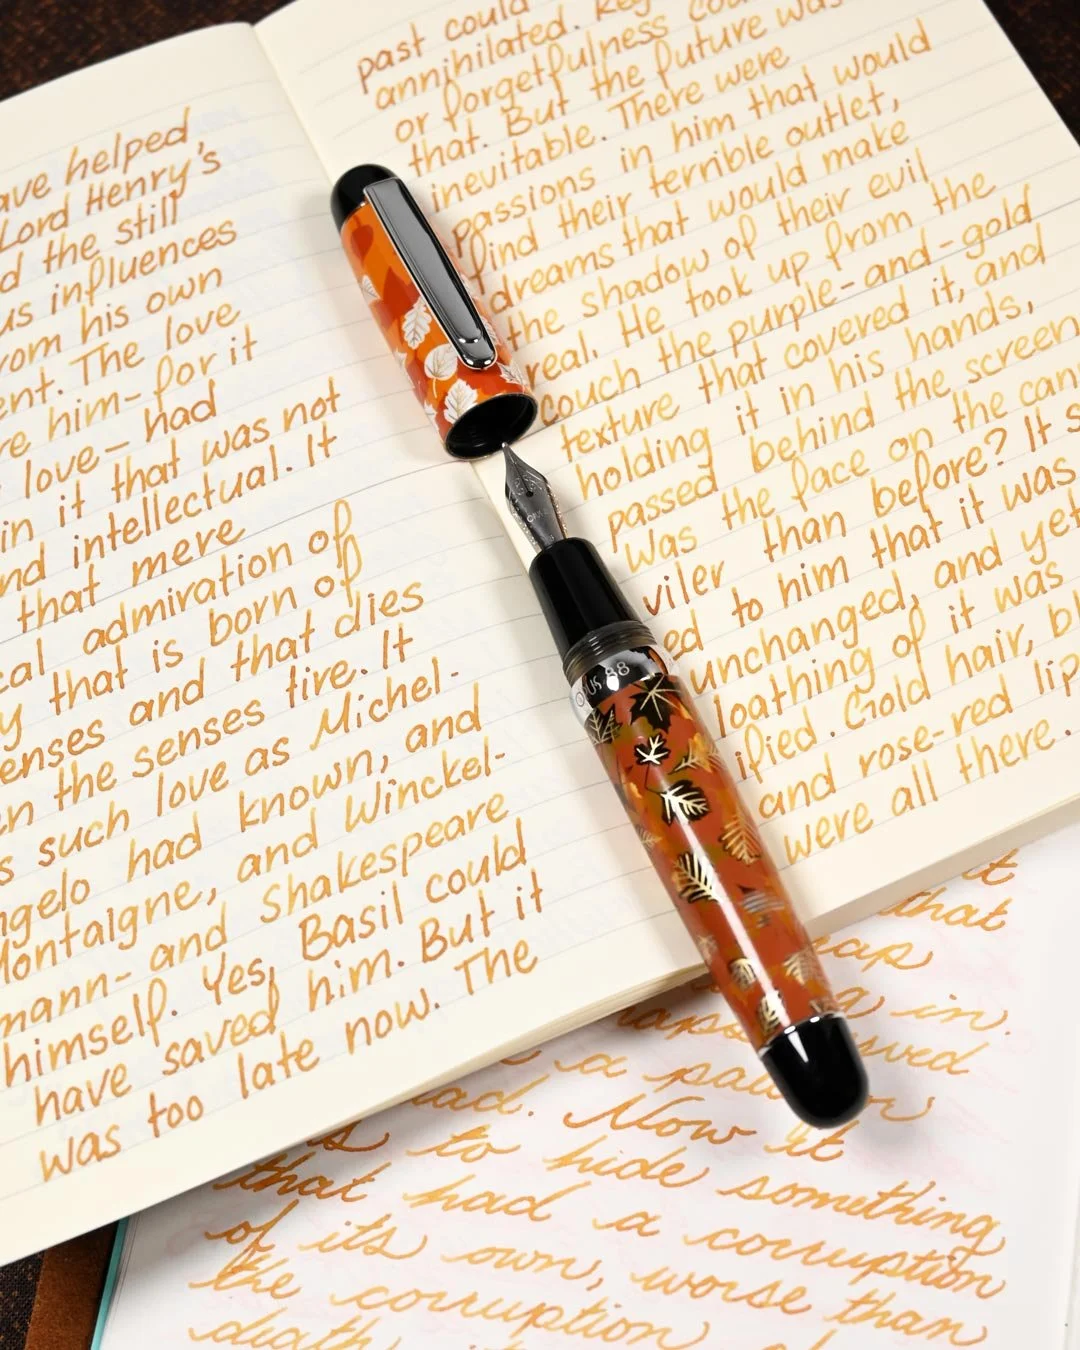 helped
Lord Henry's
the still
influences
his own
The love
him- for it
love- had
in it that was not
intellectual. It
that mere
admiration of
that is born of
and that dies
the senses tire. It
such love as Michel-
had known, and
and Winckel-
mann- and Shakespeare
himself. Yes, Basil could
have saved him. But it
was too late now. The
past could
annihilated.
or forgetfulness
that. But the future was
inevitable. There were
passions in him that would
find their terrible outlet,
dreams that would make
the shadow of their evil
real. He took up from the
couch the purple-and-gold
texture that covered it, and
holding it in his hands,
passed behind the screen.
Was the face on the
viler than before? It
to him that it was
unchanged, and yet
loathing of it was
Gold hair,
and rose-red
were all there.
OPUS 88
it
that
in.
a
Now it
to hide something
that had a corruption
of its own, worse than
the corruption
death